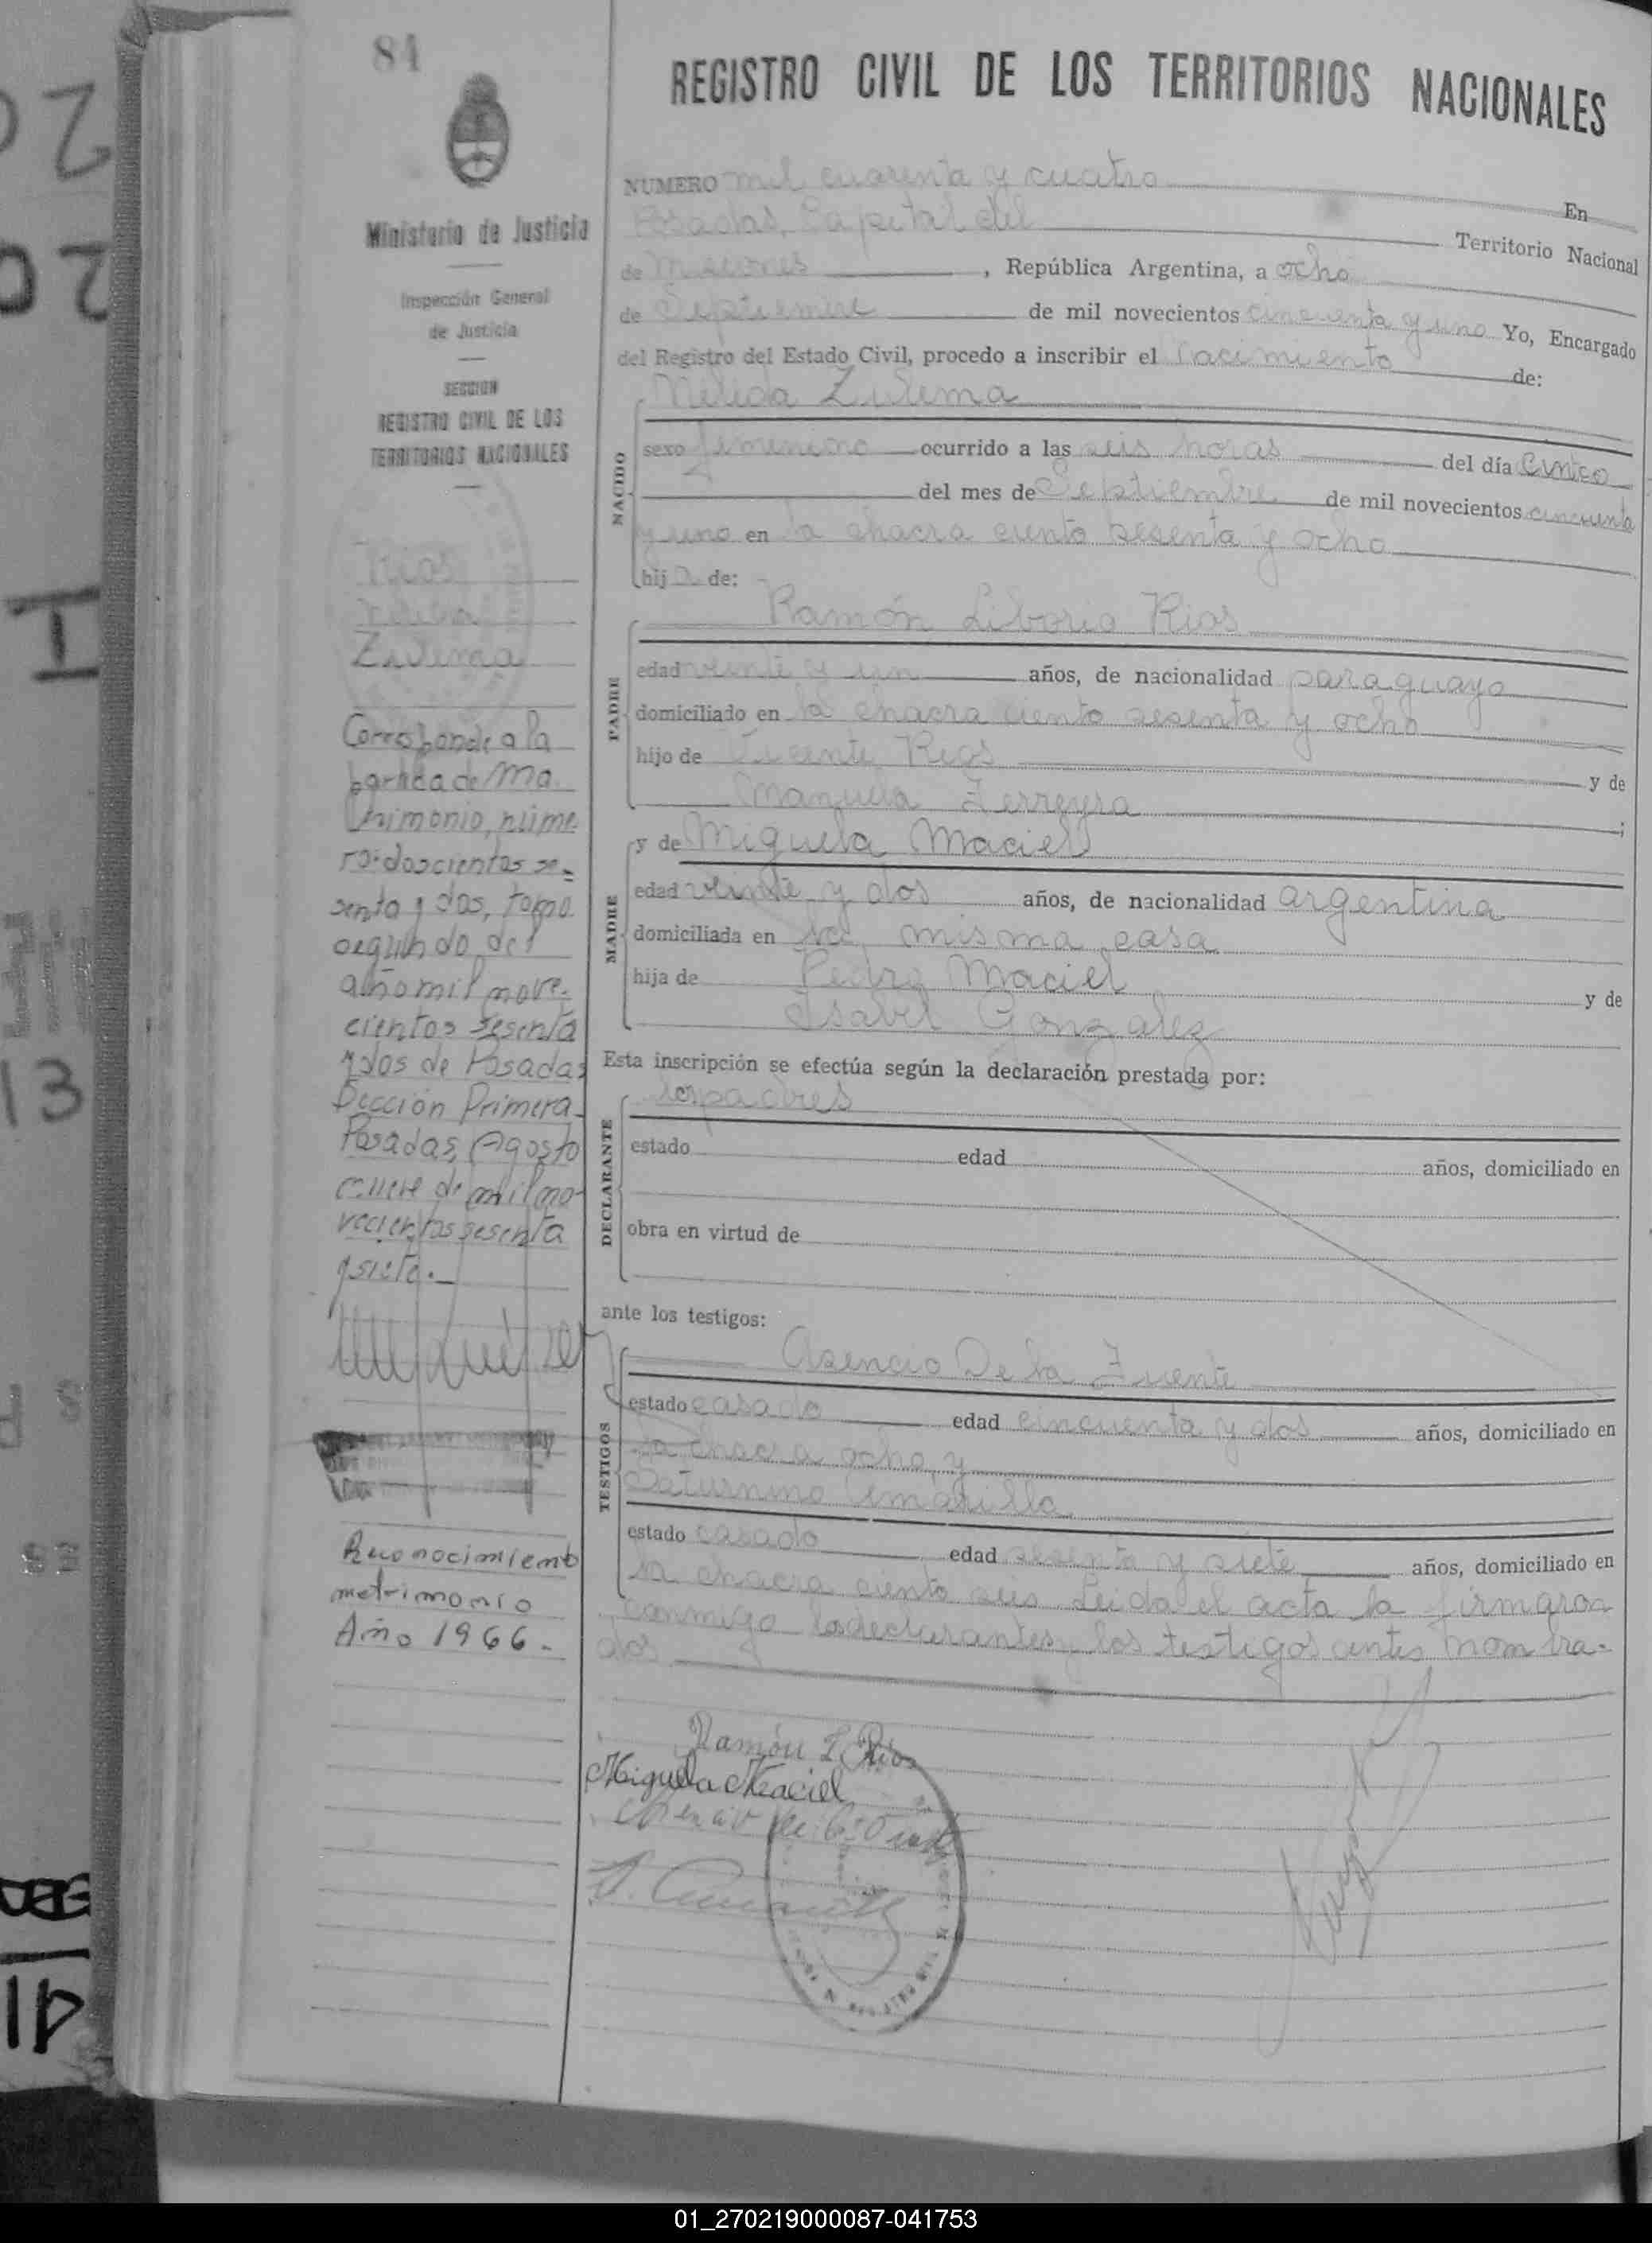 84
REGISTRO CIVIL DE LOS TERRITORIOS NACIONALES
Ministerio de Justicia
Inspección General
de Justicia
SECCION
REGISTRO CIVIL DE LOS
TERRITORIOS NACIONALES
Rios
Zulema
Corresponde a la
partida de Ma
trimonio, núme
ro doscientos se=
senta y dos, tomo
segundo del
año mil nove-
cientos sesenta
y dos de Posadas
Sección Primera-
Posadas, Agosto
de mil no-
vecientos sesenta
y siete.-
Reconocimiento
matrimonio
Año 1966.-
NUMERO mil cuarenta y cuatro En
Posadas, Capital del Territorio Nacional
de Misiones, República Argentina, a ocho
de Septiembre de mil novecientos cincuenta y uno Yo, Encargado
del Registro del Estado Civil, procedo a inscribir el nacimiento de:
Nelida Zulema
NACIDO
sexo femenino ocurrido a las seis horas del día cinco
del mes de Septiembre de mil novecientos cincuenta
y uno en la chacra ciento sesenta y ocho
hija de:
Ramón Liborio Rios
PADRE
edad veinte y un años, de nacionalidad paraguayo
domiciliado en la chacra ciento sesenta y ocho
hijo de Vicente Rios y de
Manuela Ferreyra;
MADRE
y de Miguela Maciel
edad veinte y dos años, de nacionalidad argentina
domiciliada en la misma casa
hija de Pedro Maciel y de
Isabel Gonzalez
Esta inscripción se efectúa según la declaración prestada por:
los padres
DECLARANTE
estado edad años, domiciliado en
obra en virtud de
ante los testigos:
Asencio De la Fuente
TESTIGOS
estado casado edad cincuenta y dos años, domiciliado en
la chacra ocho y
Saturnino Amarilla
estado casado edad sesenta y siete años, domiciliado en
la chacra ciento seis. Leida el acta la firmaron
conmigo los declarantes y los testigos antes nombra-
dos
Ramón L Rios
Miguela Maciel
01_270219000087-041753